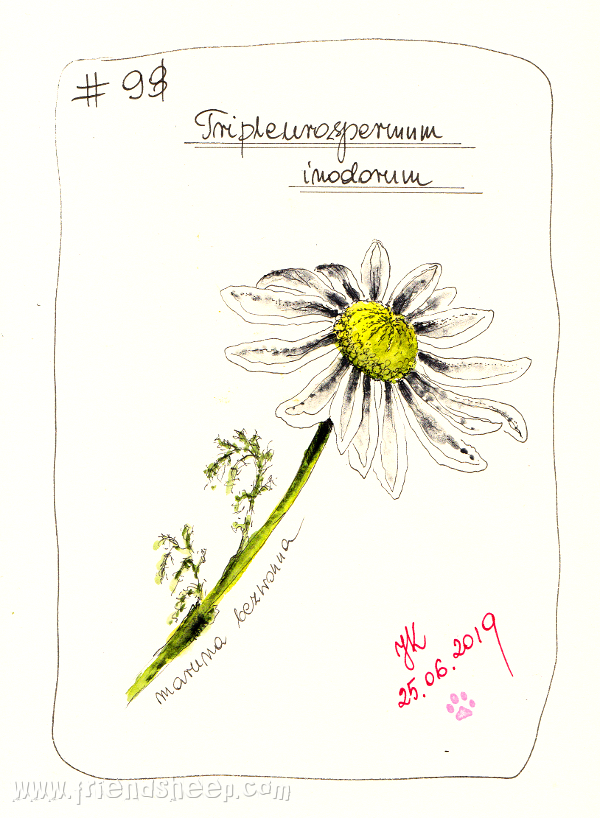 # 98
Tripleurospermum
inodorum
maruna bezwonna
YK
25.06.2019
www.friendsheep.com